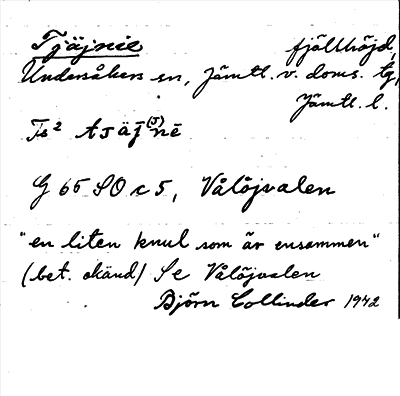 Tjäjnie fjällhöjd,
Undersåkers sn, Jämtl. v. doms. tg,
Jämtl. l.
G 65 SO c 5, Vålöjvalen
"en liten knul som är ensammen"
(bet. okänd) Se Vålöjvalen
Björn Collinder 1942